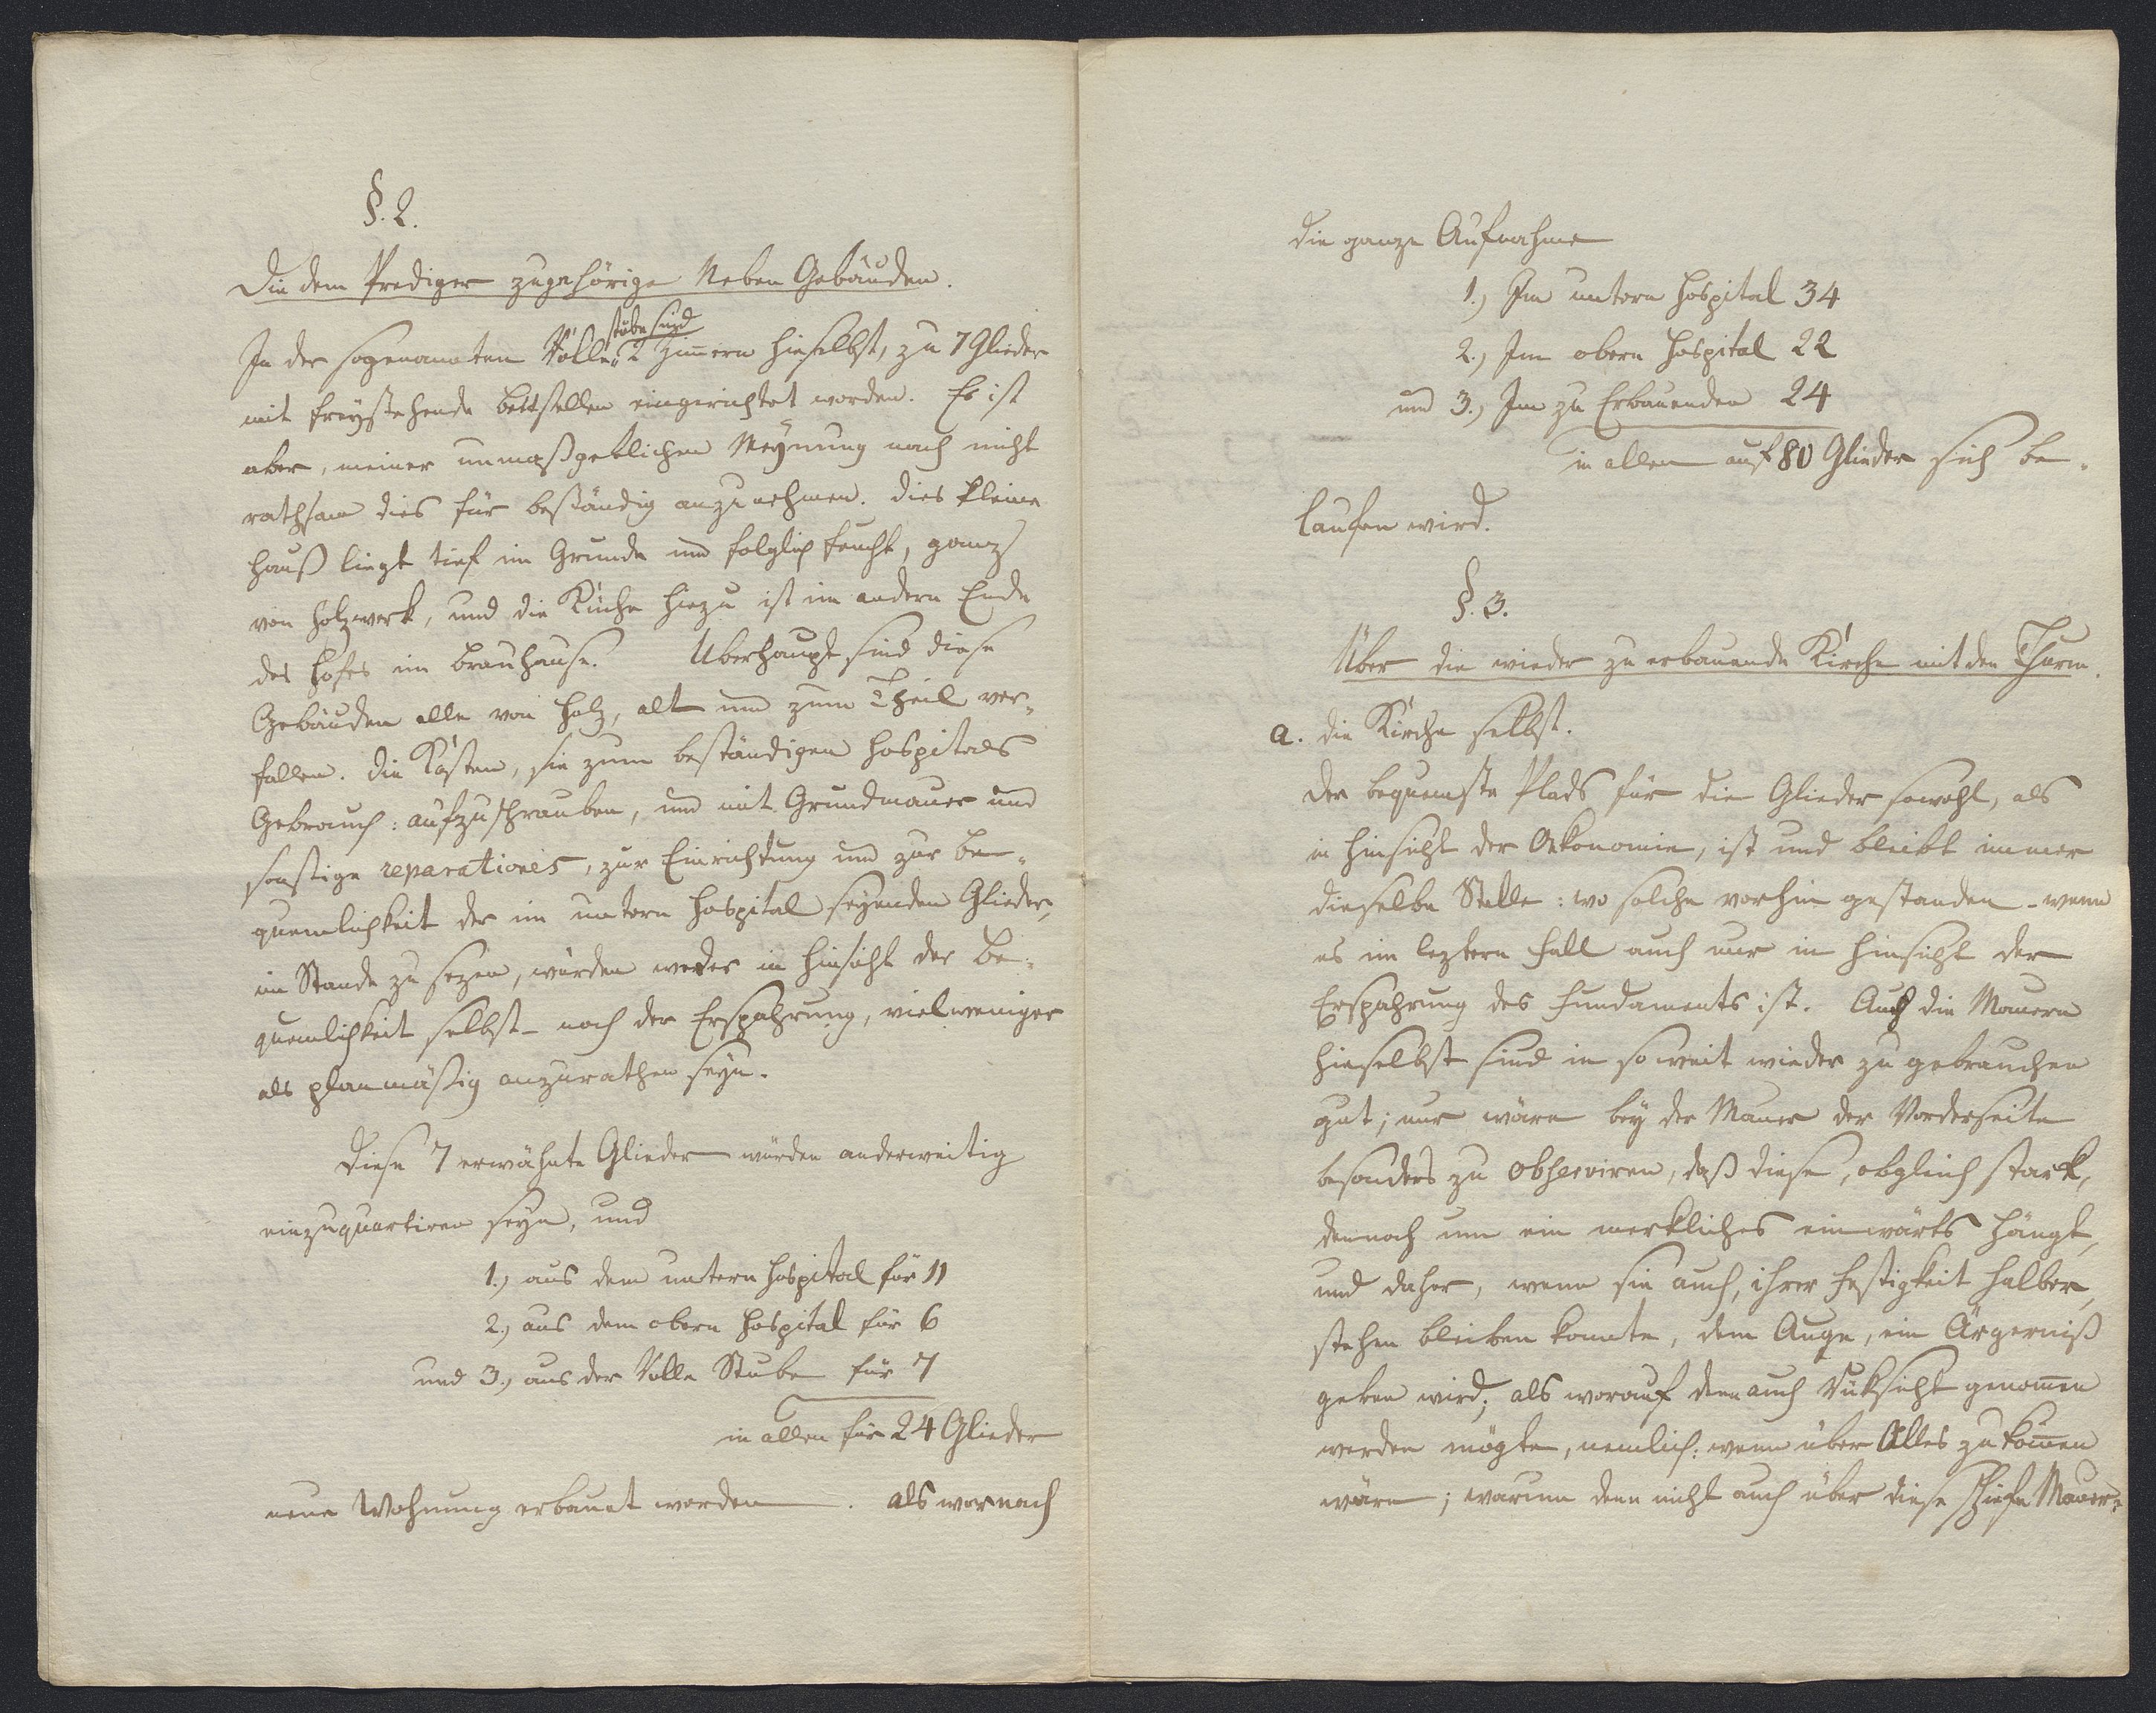 §. 2.
Die dem Prediger zugehörige Neben Gebäuden.
stube sind
In der sogenannten Völler 2 Zimmern hieselbst, zu 7 Glieder
mit freystehende Bettstellen eingerichtet worden. Es ist
aber, meiner unmaßgeblichen Meynung nach nicht
rathsam dies für beständig anzunehmen. Dies kleine
Hauß liegt tief im Grunde und folglich feucht, ganz
von Holzwerk, und die Küche hiezu ist im andern Ende
des Hofes im Brauhause. Überhaupt sind diese
Gebäuden alle von Holz, alt und zum Theil ver„
fallen. Die Kosten, sie zum beständigen Hospitals
Gebrauch: aufzuschrauben, und mit Grundmauer und
sonstige reparationes, zur Einrichtung und zur Be„
quemlichkeit der im untern Hospital seyenden Glieder,
im Stande zu sezen, würden weder in Hinsicht der Be„
quemlichkeit selbst – noch der Ersparung, vielweniger
als planmäßig anzurathen seyn.
Diese 7 erwähnte Glieder würden anderweitig
einzuquartiren seyn, und
1.) aus dem untern Hospital für 11
2.) aus dem obern Hospital für 6
und 3.) aus der Völle Stube für 7
in allen für 24 Glieder
neue Wohnung erbauet werden. als wornach
die ganze Aufnahme
1.) Im untern Hospital 34
2.) Im obern Hospital 22
und 3.) Im zu Erbauenden 24
in allem auf 80 Glieder sich be„
laufen wird.
§. 3.
Über die wieder zu erbauende Kirche mit den Thurm.
a. die Kirche selbst.
Der bequemste Plads für die Glieder sowohl, als
in Hinsicht der Oekonomie, ist und bleibt immer
dieselbe Stelle: wo solche vorhin gestanden – wenn
es im leztern Fall auch nur in Hinsicht der
Ersparung des Fundaments ist. Auch die Mauern
hieselbst sind in so weit wieder zu gebrauchen
gut; nur wäre bey der Mauer der Vorderseite
besonders zu observiren, daß diese, obgleich stark,
dennoch um ein merkliches einwärts hängt,
und daher, wenn sie auch, ihrer Festigkeit halber,
stehen bleiben konnte, dem Auge, ein Ärgerniß
geben wird; als worauf denn auch Rüksicht genommen
werden mögte, nemlich: wenn über Alles zu kommen
wäre; warum denn nicht auch über diese schiefe Mauer: